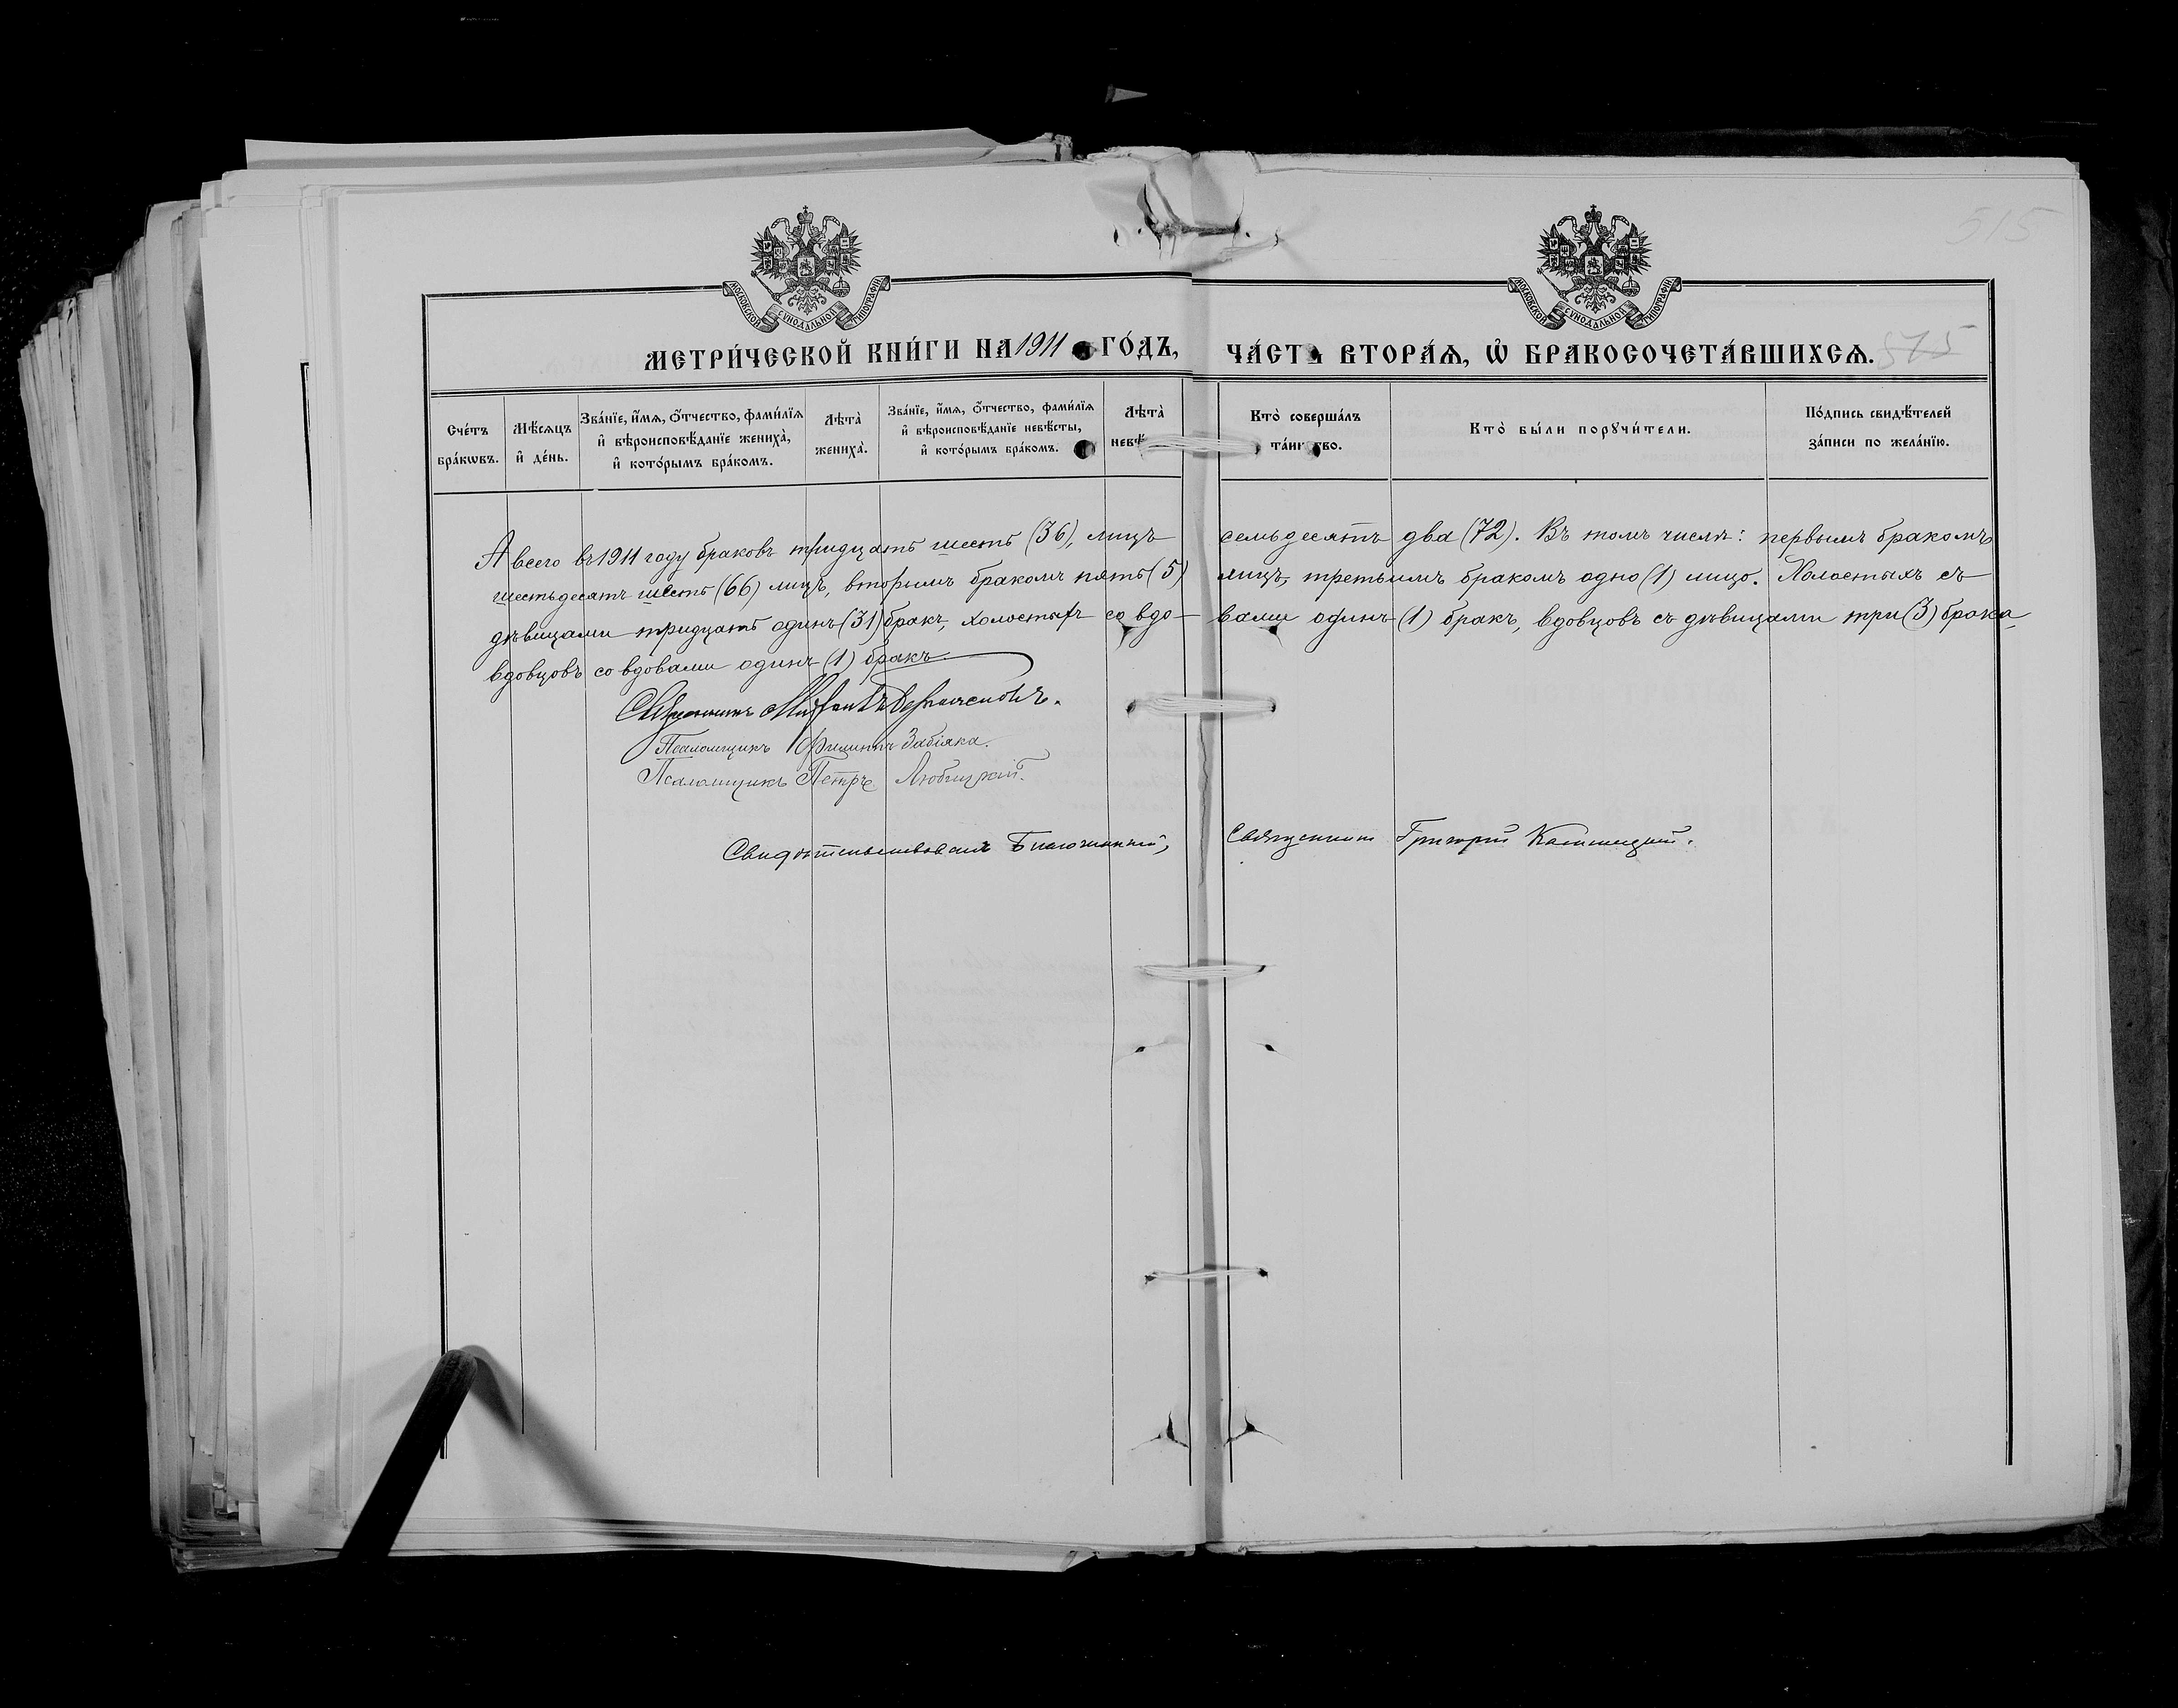 515
МОСКОВСКОЙ СУНОДАЛЬНОЙ ТИПОГРАФІИ
МОСКОВСКОЙ СУНОДАЛЬНОЙ ТИПОГРАФІИ
МЕТРИ́ЧЕСКОЙ КНИ́ГИ НА 1911 ГО́ДЪ,
ЧА́СТЬ ВТОРА́Ѧ, Ѡ҆ БРАКОСОЧЕТА́ВШИХСѦ.
515
Сче́тъ
бра́кѡвъ.
Мѣ́сѧцъ
и҆ де́нь.
Зва́нїе, и҆́мѧ, ѻ҆́тчество, фами́лїѧ
и҆ вѣроисповѣ́данїе жениха̀,
и҆ кото́рымъ бра́комъ.
Лѣта̀
жениха̀.
Зва́нїе, и҆́мѧ, ѻ҆́тчество, фами́лїѧ
и҆ вѣроисповѣ́данїе невѣ́сты,
и҆ кото́рымъ бра́комъ.
Лѣта̀
невѣ́
Кто̀ соверша́лъ
та́инство.
Кто̀ бы́ли порꙋчи́тели.
По́дпись свидѣ́телей
за́писи по жела́нїю.
А всего въ 1911 году браковъ тридцать шесть (36), лицъ семьдесятъ два (72). Въ томъ числѣ: первымъ бракомъ
шестьдесятъ шесть (66) лицъ, вторымъ бракомъ пять (5) лицъ, третьимъ бракомъ одно (1) лицо. Холостыхъ съ
дѣвицами тридцать одинъ (31) бракъ, холостыхъ со вдо-вами одинъ (1) бракъ, вдовцовъ съ дѣвицами три (3) брака,
вдовцовъ со вдовами одинъ (1) бракъ
Священникъ
Псаломщикъ Филиппъ Забіяка.
Псаломщикъ Петръ Любицкій.
Свидѣтельствовалъ Благочинный, Священникъ Григорій